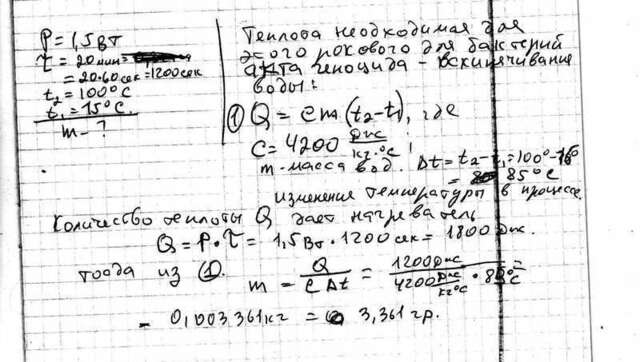 P = 1,5 Вт
τ = 20 мин =
= 20·60 сек = 1200 сек
t₂ = 100°C
t₁ = 15°C.
m - ?
Теплова необходимая для
этого рокового для бактерий
акта геноцида - вскипячивание
воды:
① Q = cm(t₂-t₁), где
C = 4200 Дж/кг·°C !
m - масса вод. Δt = t₂ - t₁ = 100° - 15°
= 85°C
изменение температуры в процессе.
Количество теплоты Q дает нагреватель
Q = P·τ = 1,5 Вт · 1200 сек = 1800 Дж.
тогда из ①.
m = Q/(c Δt) = 1200 Дж/(4200 Дж/кг°C · 85°C) =
= 0,003361 кг = 3,361 гр.